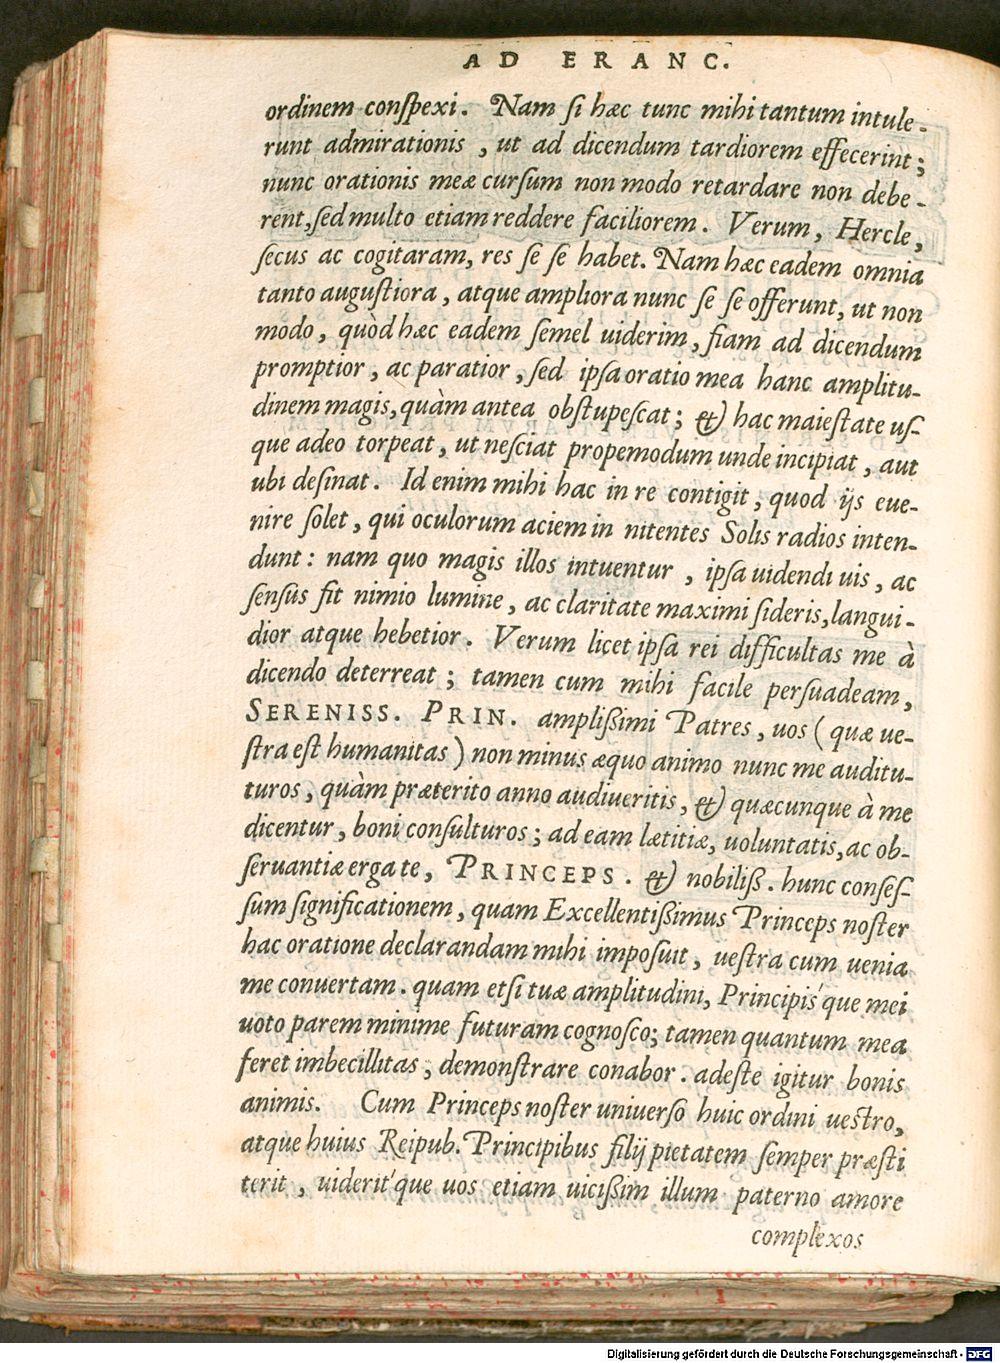 AD ERANC.
ordinem conſpexi. Nam ſi hæc tunc mihi tantum intule-
runt admirationis, ut ad dicendum tardiorem effecerint;
nunc orationis meæ curſum non modo retardare non debe-
rent, ſed multo etiam reddere faciliorem. Verum, Hercle,
ſecus ac cogitaram, res ſe ſe habet. Nam hæc eadem omnia
tanto auguſtiora, atque ampliora nunc ſe ſe offerunt, ut non
modo, quòd hæc eadem ſemel uiderim, fiam ad dicendum
promptior, ac paratior, ſed ipſa oratio mea hanc amplitu-
dinem magis, quàm antea obſtupeſcat; & hac maieſtate uſ-
que adeo torpeat, ut neſciat propemodum unde incipiat, aut
ubi deſinat. Id enim mihi hac in re contigit, quod ijs eue-
nire ſolet, qui oculorum aciem in nitentes Solis radios inten-
dunt: nam quo magis illos intuentur, ipſa uidendi uis, ac
ſenſus fit nimio lumine, ac claritate maximi ſideris, langui-
dior atque hebetior. Verum licet ipſa rei difficultas me à
dicendo deterreat; tamen cum mihi facile perſuadeam,
SERENISS. PRIN. ampliſſimi Patres, uos (quæ ue-
ſtra eſt humanitas) non minus æquo animo nunc me auditu-
turos, quàm præterito anno audiueritis, & quæcunque à me
dicentur, boni conſulturos; ad eam lætitiæ, uoluntatis, ac ob-
ſeruantiæ erga te, PRINCEPS. & nobiliß. hunc conſeſ-
ſum ſignificationem, quam Excellentißimus Princeps noſter
hac oratione declarandam mihi impoſuit, ueſtra cum uenia
me conuertam. quam etſi tuæ amplitudini, Principis'que mei
uoto parem minime futuram cognoſco; tamen quantum mea
feret imbecillitas, demonſtrare conabor. adeſte igitur bonis
animis. Cum Princeps noſter uniuerſo huic ordini ueſtro,
atque huius Reipub. Principibus filij pietatem ſemper præſti
terit, uiderit'que uos etiam uicißim illum paterno amore
complexos
Digitalisierung gefördert durch die Deutsche Forschungsgemeinschaft - DFG